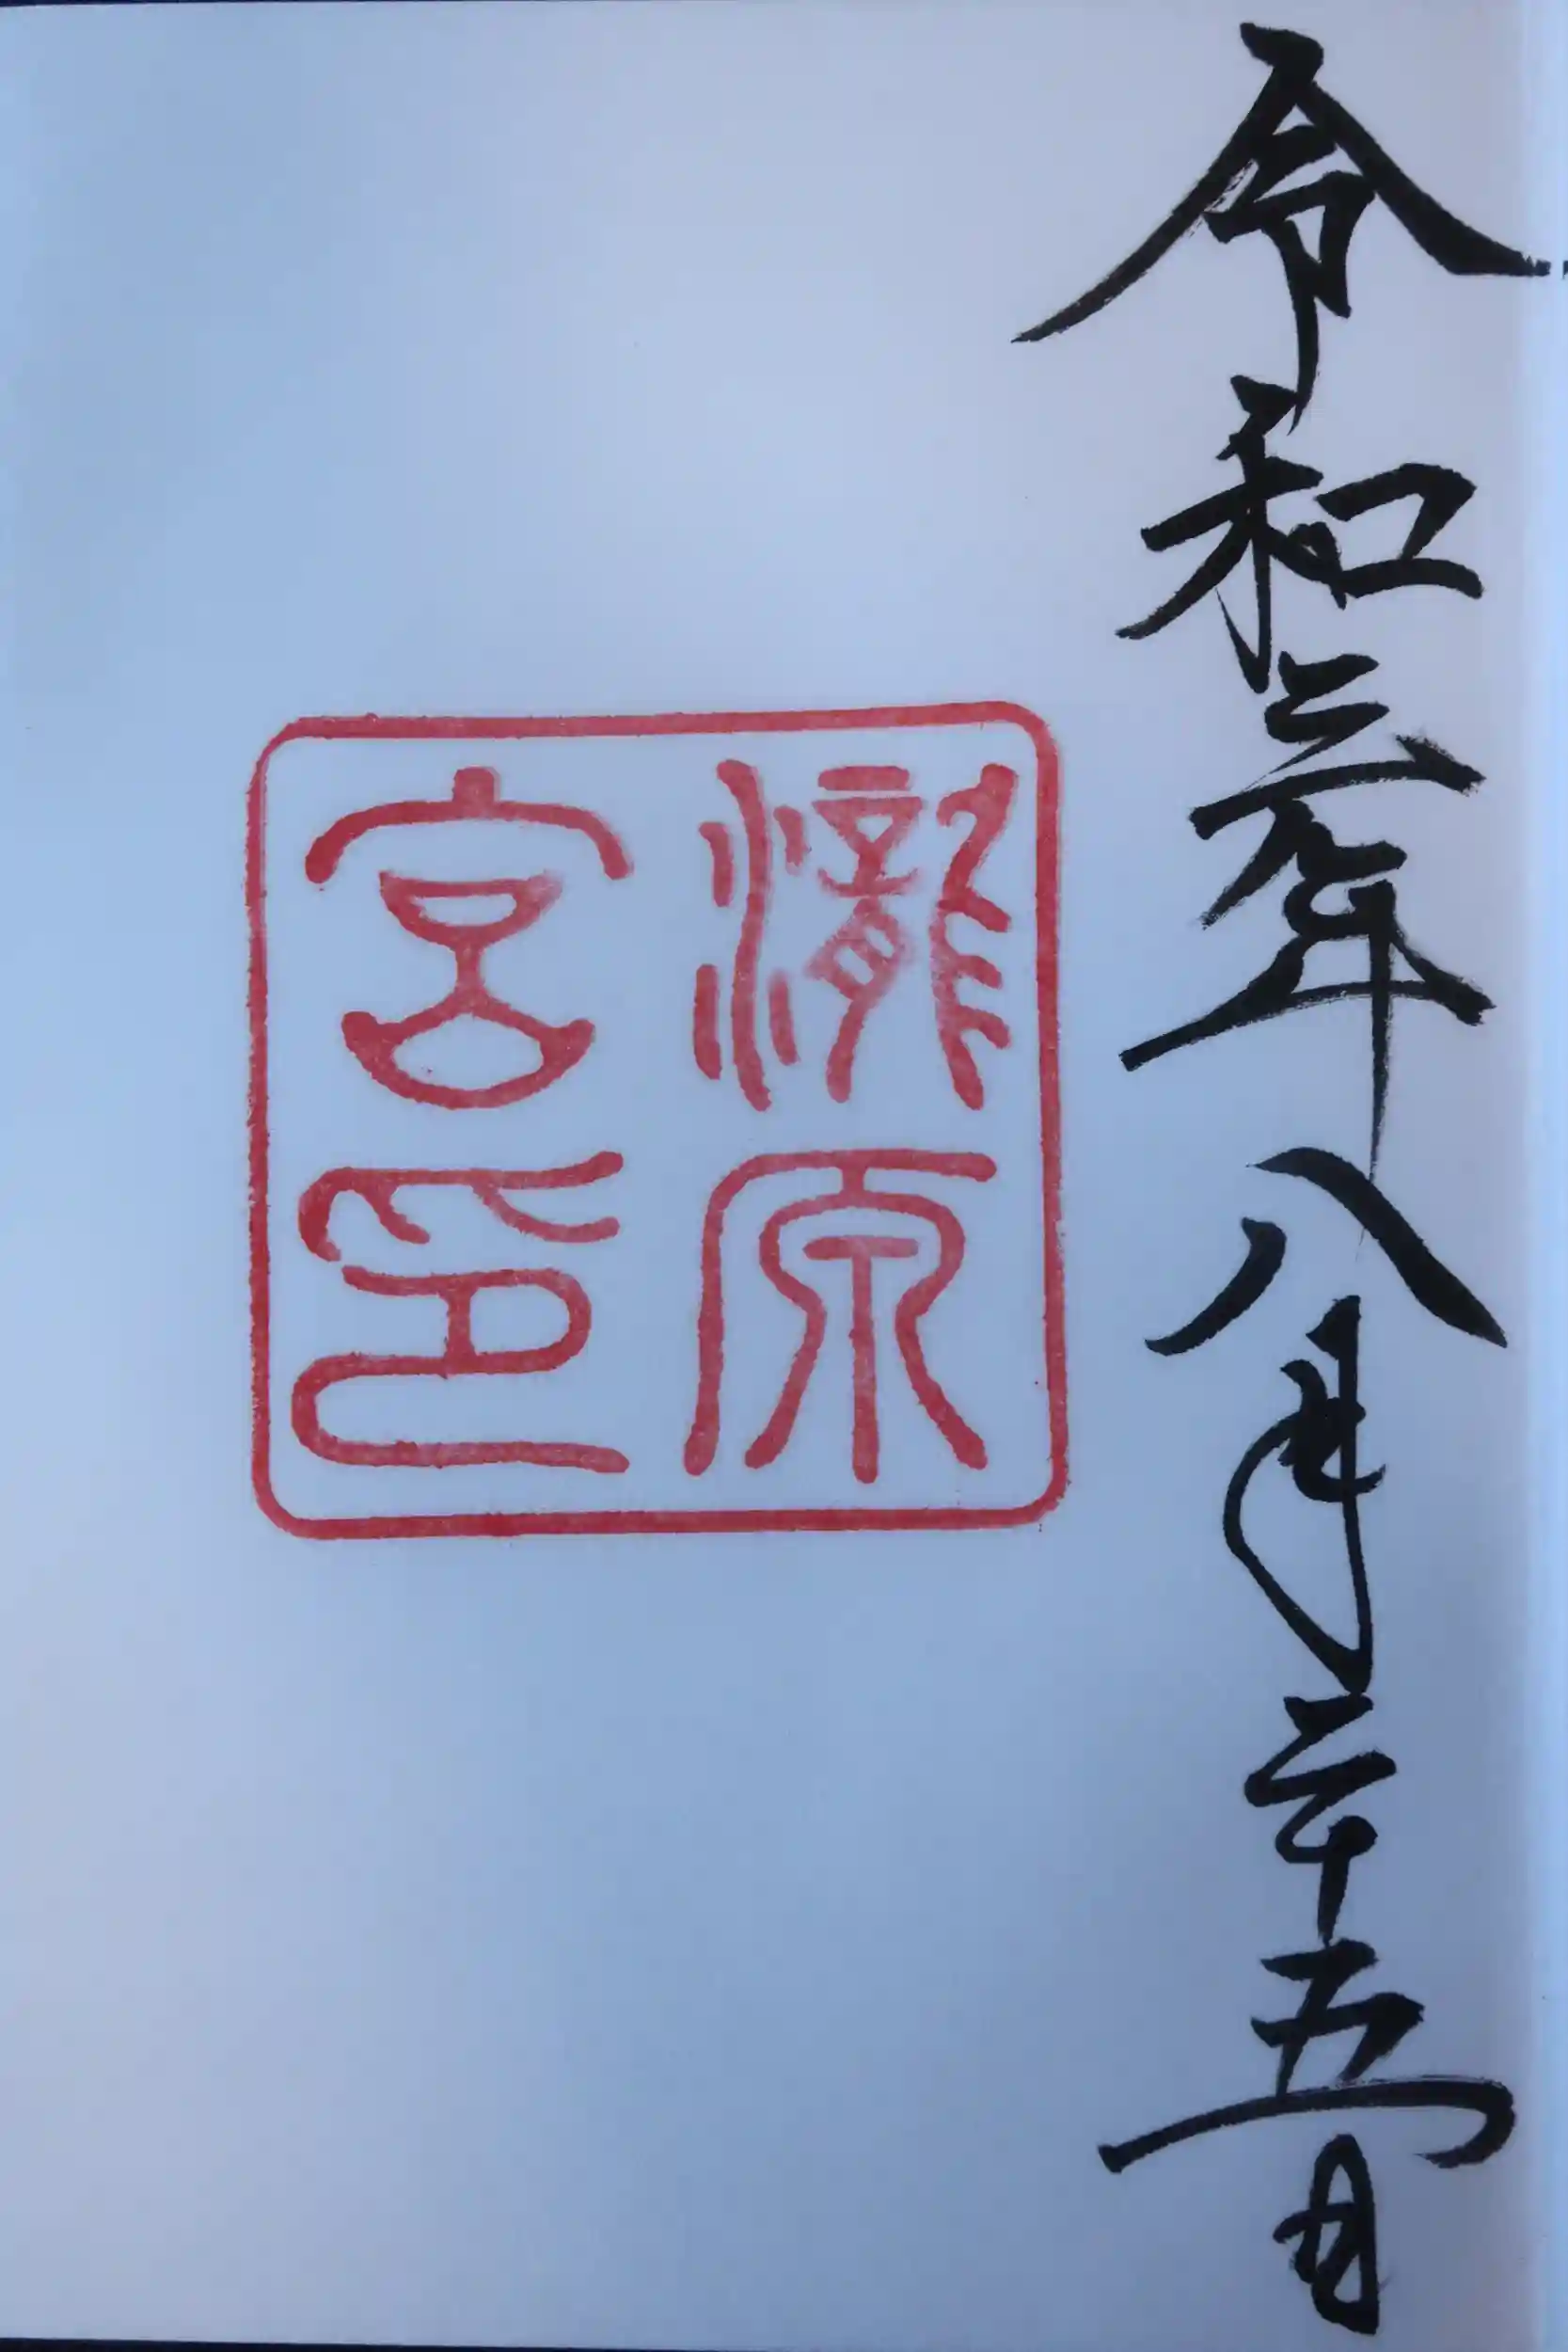 令和三年八月二十五日
瀧原
宮印